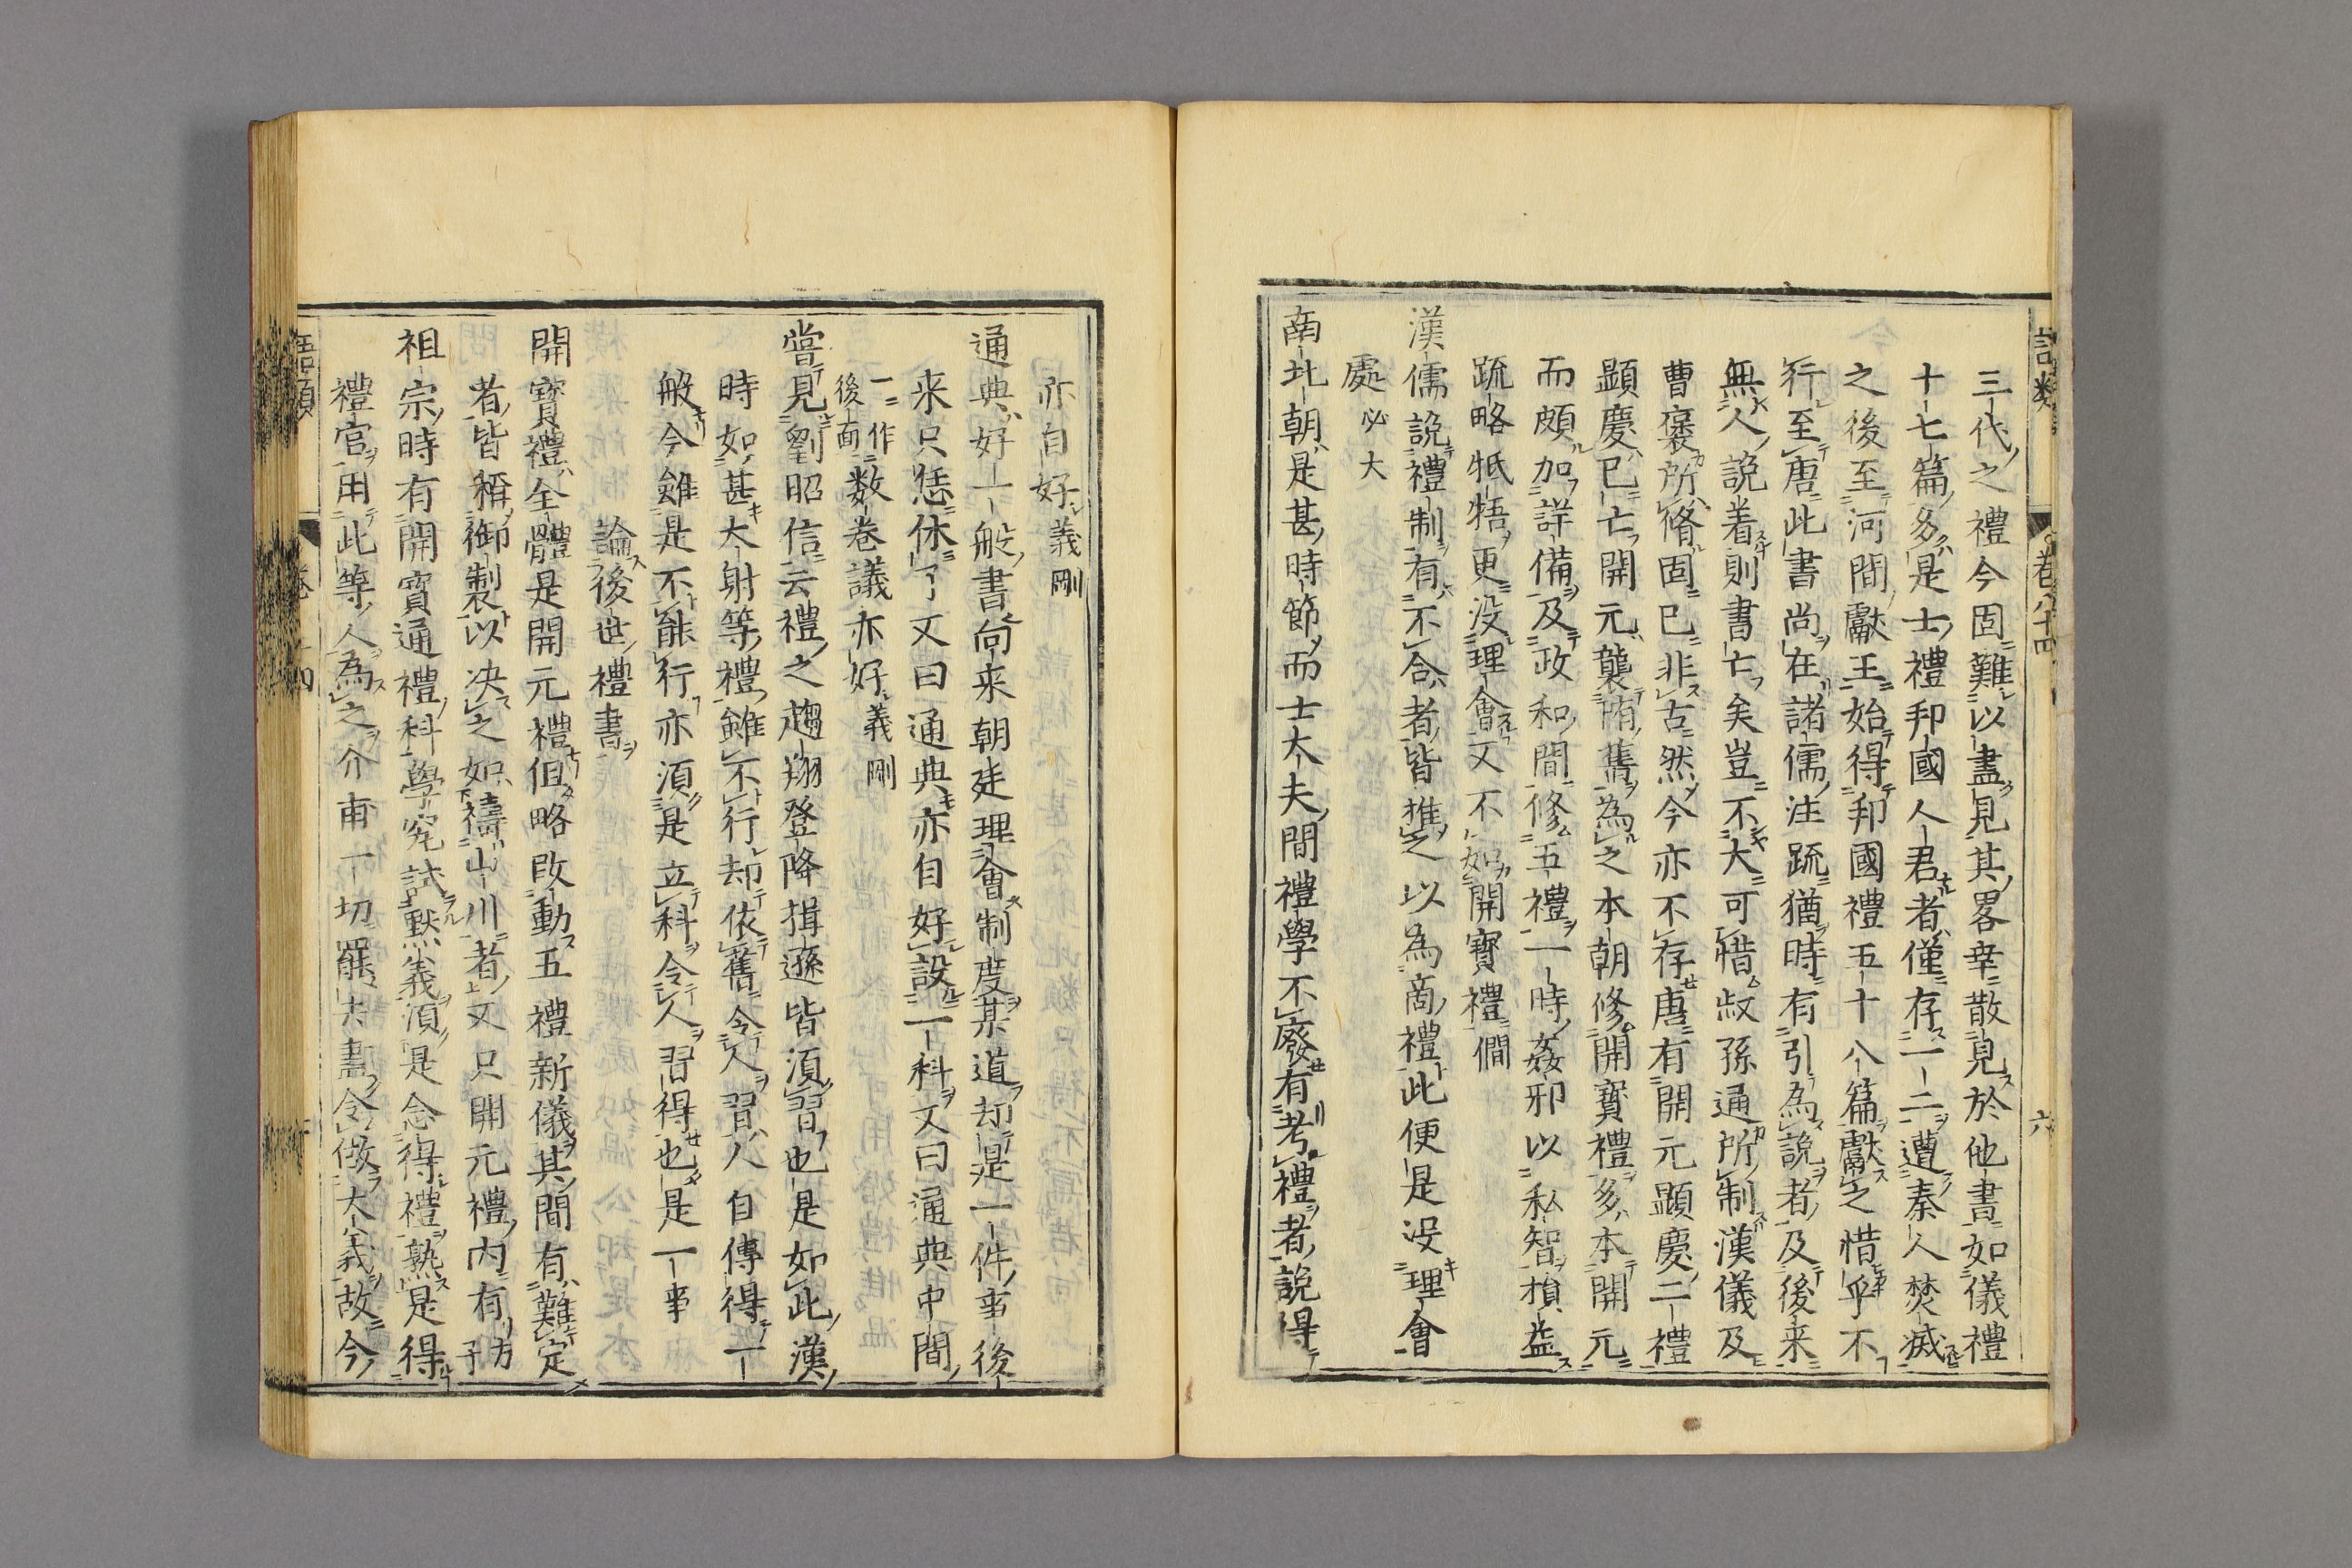 語類 卷八十四 六
三代之禮今固難以盡見其畧幸散見於他書如儀禮
十七篇多是士禮邦國人君者僅存一二遭秦人焚滅
之後至河間獻王始得邦國禮五十八篇獻之惜乎不
行至唐此書尚在諸儒注疏猶時有引為說者及後来
無人說着則書亡矣豈不大可惜叔孫通所制漢儀及
曹褒所脩固已非古然今亦不存唐有開元顯慶二禮
顯慶已亡開元襲隋舊為之本朝修開寳禮多本開元
而頗加詳備及政和間修五禮一時姦邪以私智損益
疏略牴牾更没理會又不如開寳禮僩
漢儒說禮制有不合者皆推之以為商禮此便是没理會
處必大
南北朝是甚時節而士大夫間禮學不廢有考禮者說得
亦自好義剛
通典好一般書向来朝廷理會制度某道却是一件事後
来只恁休了又曰通典亦自好設一科又曰通典中間
一作後面数卷議亦好義剛
嘗見劉昭信云禮之趨翔登降揖遜皆須習也是如此漢
時如甚大射等禮雖不行却依舊令人習人自傳得一
般今雖是不能行亦須是立科令人習得也是一事
論後世禮書
開寳禮全體是開元禮但略改動五禮新儀其間有難定
者皆稱御製以决之如禱山川者又只開元禮内有方子
祖宗時有開寳通禮科學究試默義須是念得禮熟是得
禮官用此等人為之介甫一切罷去盡令做大義故今
語類 卷 十四